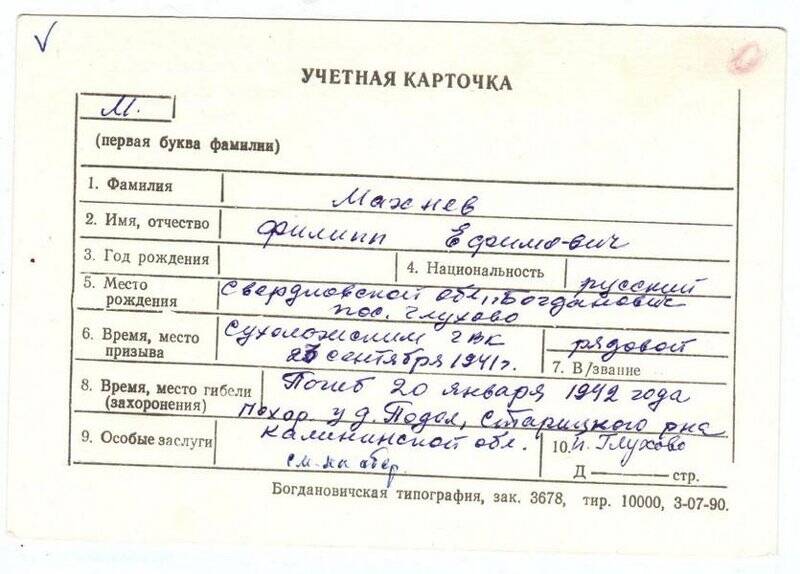 УЧЕТНАЯ КАРТОЧКА
М.
(первая буква фамилии)
1. Фамилия Махнев
2. Имя, отчество Филипп Ефимович
3. Год рождения 4. Национальность русский
5. Место рождения Свердловской обл., Богданович
пос. Глухово
6. Время, место призыва Сухоложским ГВК
рядовой
23 сентября 1941г.
7. В/звание
8. Время, место гибели (захоронения) Погиб 20 января 1942 года
Похор. у д. Подол, Старицкого рна
9. Особые заслуги Калининской обл.
10. п. Глухово
см. на обор.
Д — стр.
Богдановичская типография, зак. 3678, тир. 10000, 3-07-90.